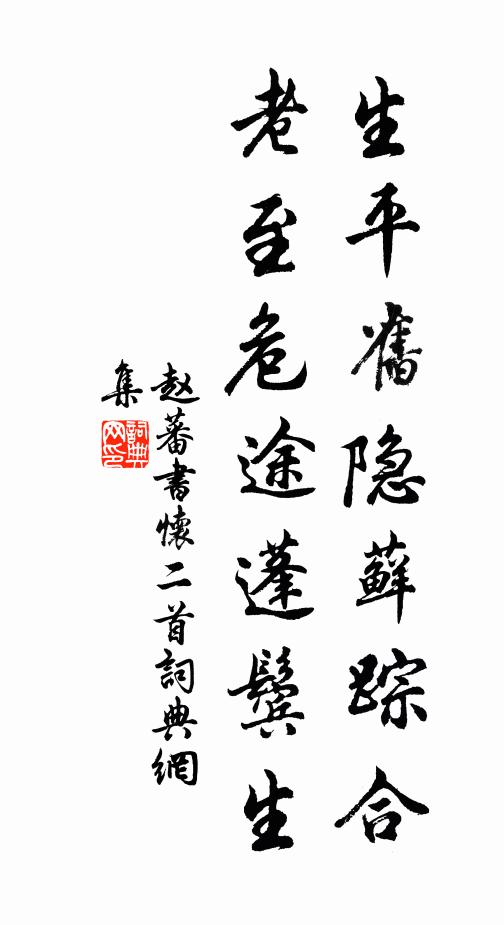 生平舊隐蘚踪合
老至危途蓬鬓生
赵蕃書懷二首詞典網
集
詞典网印